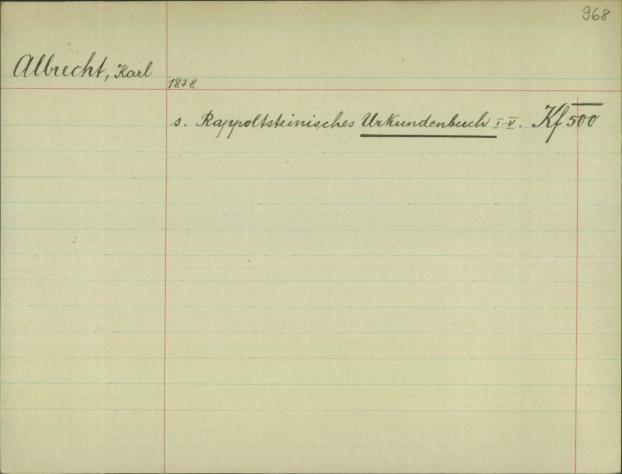 968
Albrecht, Karl
1878
s. Rappoltsteinisches Urkundenbuch I-V. Kf 500